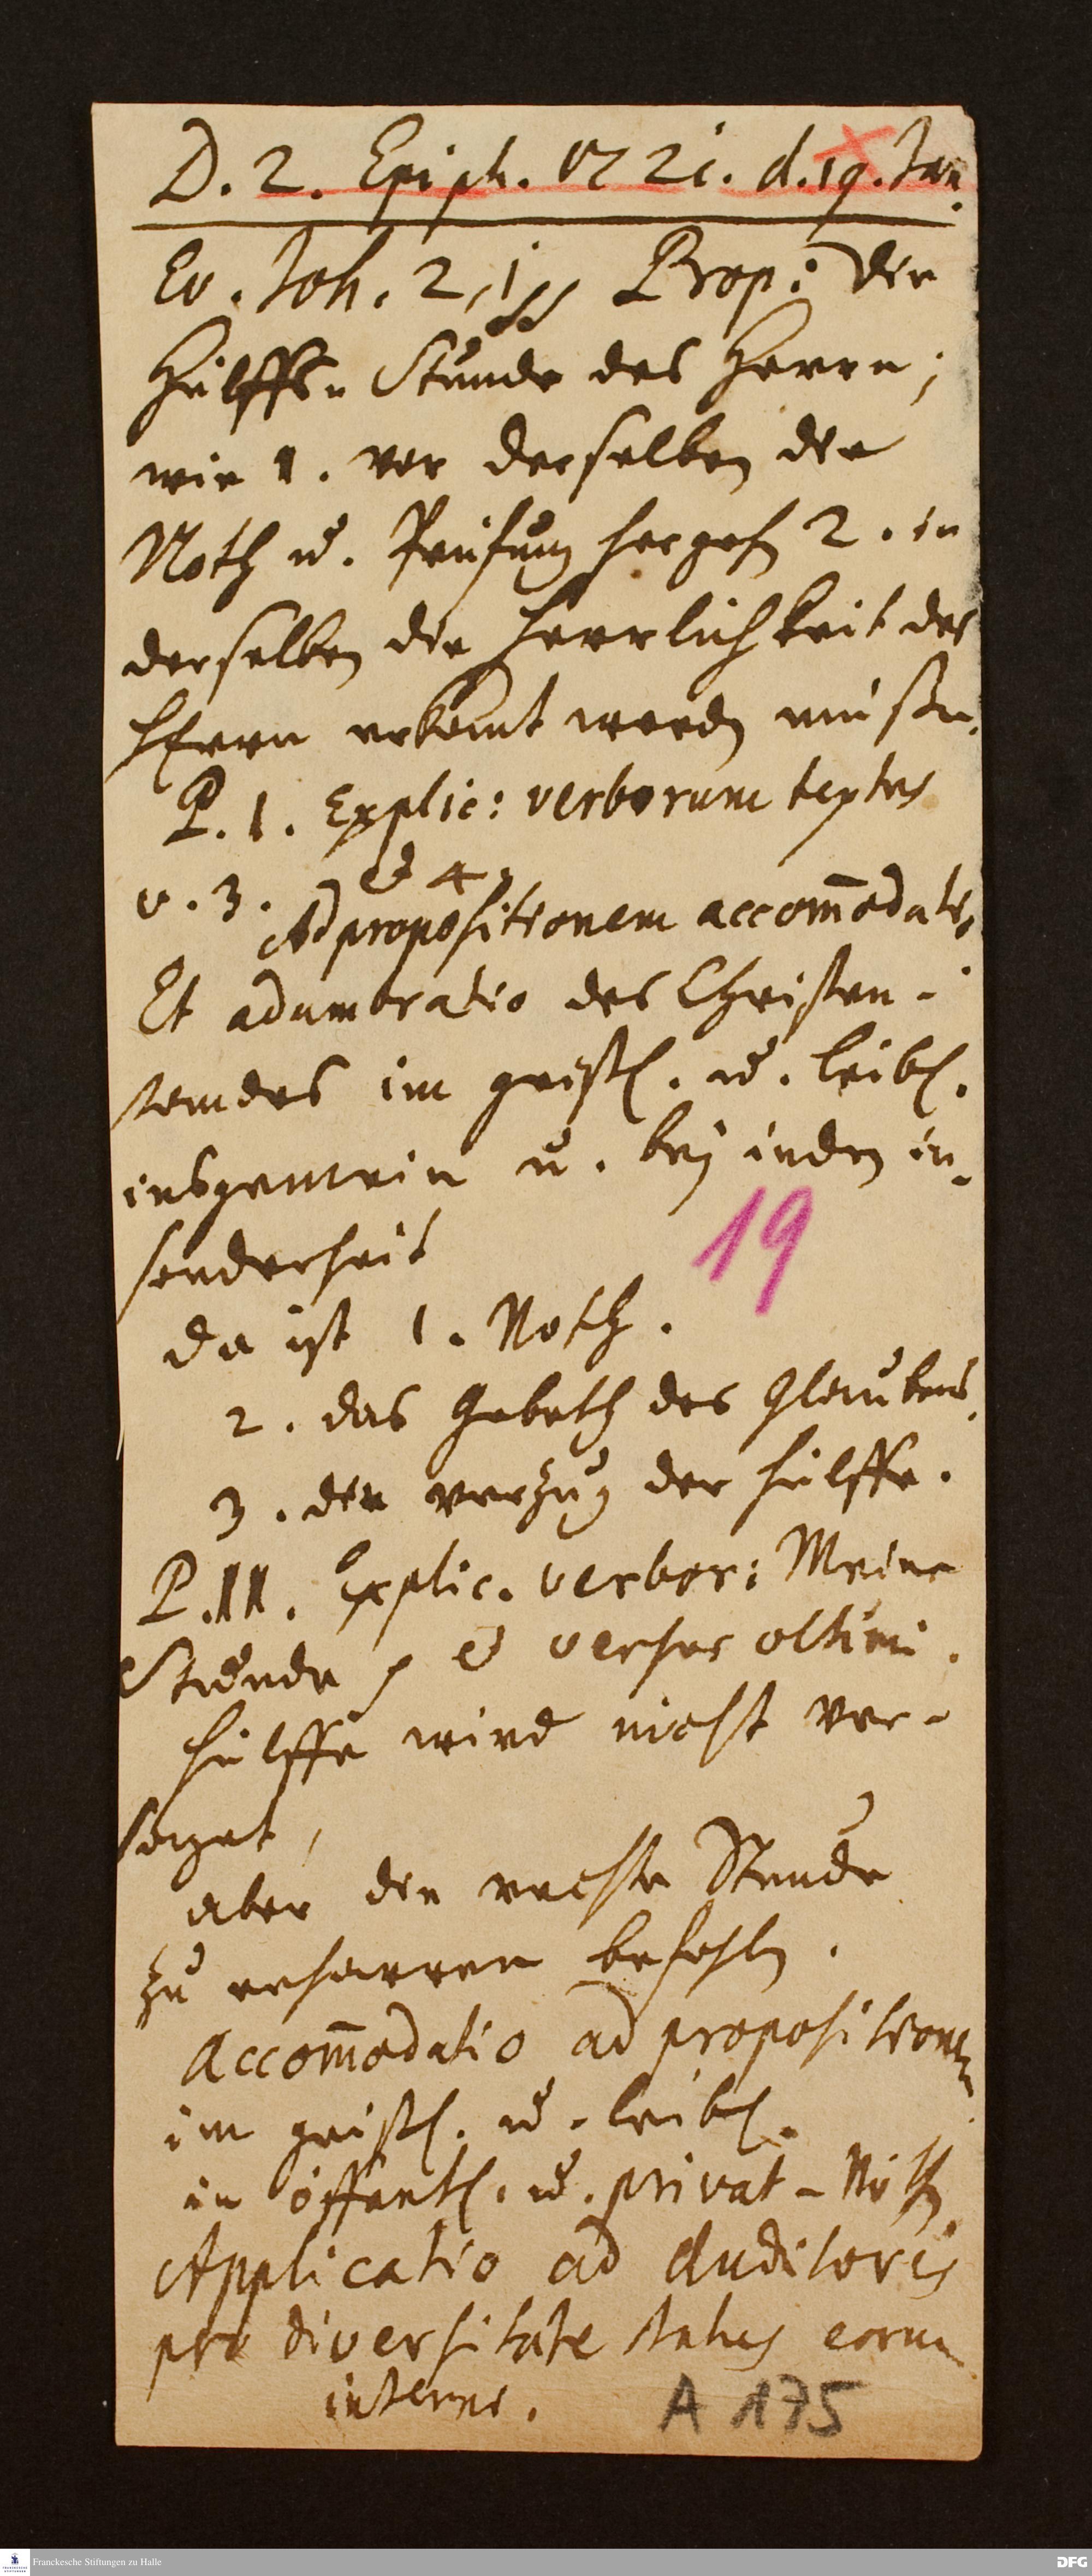 D. 2. Epiph. 1721. d. 19. Jan.
Ev. Joh. 2, 1 ss Prop: die
Hülffs-Stunde des Herrn;
wie 1. vor derselben die
Noth u. Prüfung hergeh 2. in
derselben die Herrlichkeit des
HErrn erkant werden müsse.
P. 1. Explic: verborum textus
v. 3. & 4.
Ad propositionem accom̄odatio,
Et adumbratio des Christen-
standes im geistl. u. leibl.
insgemein u. bey jeden in-
sonderheit
19
da ist 1. Noth.
2. das Gebeth des Glaubens.
3. der verzug der hülffe.
P. II. Explic. verbor: Meine
Stunde & versus ultimi.
hülffe wird nicht ver-
saget,
aber die rechte Stunde
zu erharren befohlen.
Accom̄odatio ad propositionem
im geistl. u. leibl.
in öffentl. u. privat-Nöthen
Applicatio ad Auditores
pro diversitate status eorum
interni.
A 175
Franckesche Stiftungen zu Halle
DFG